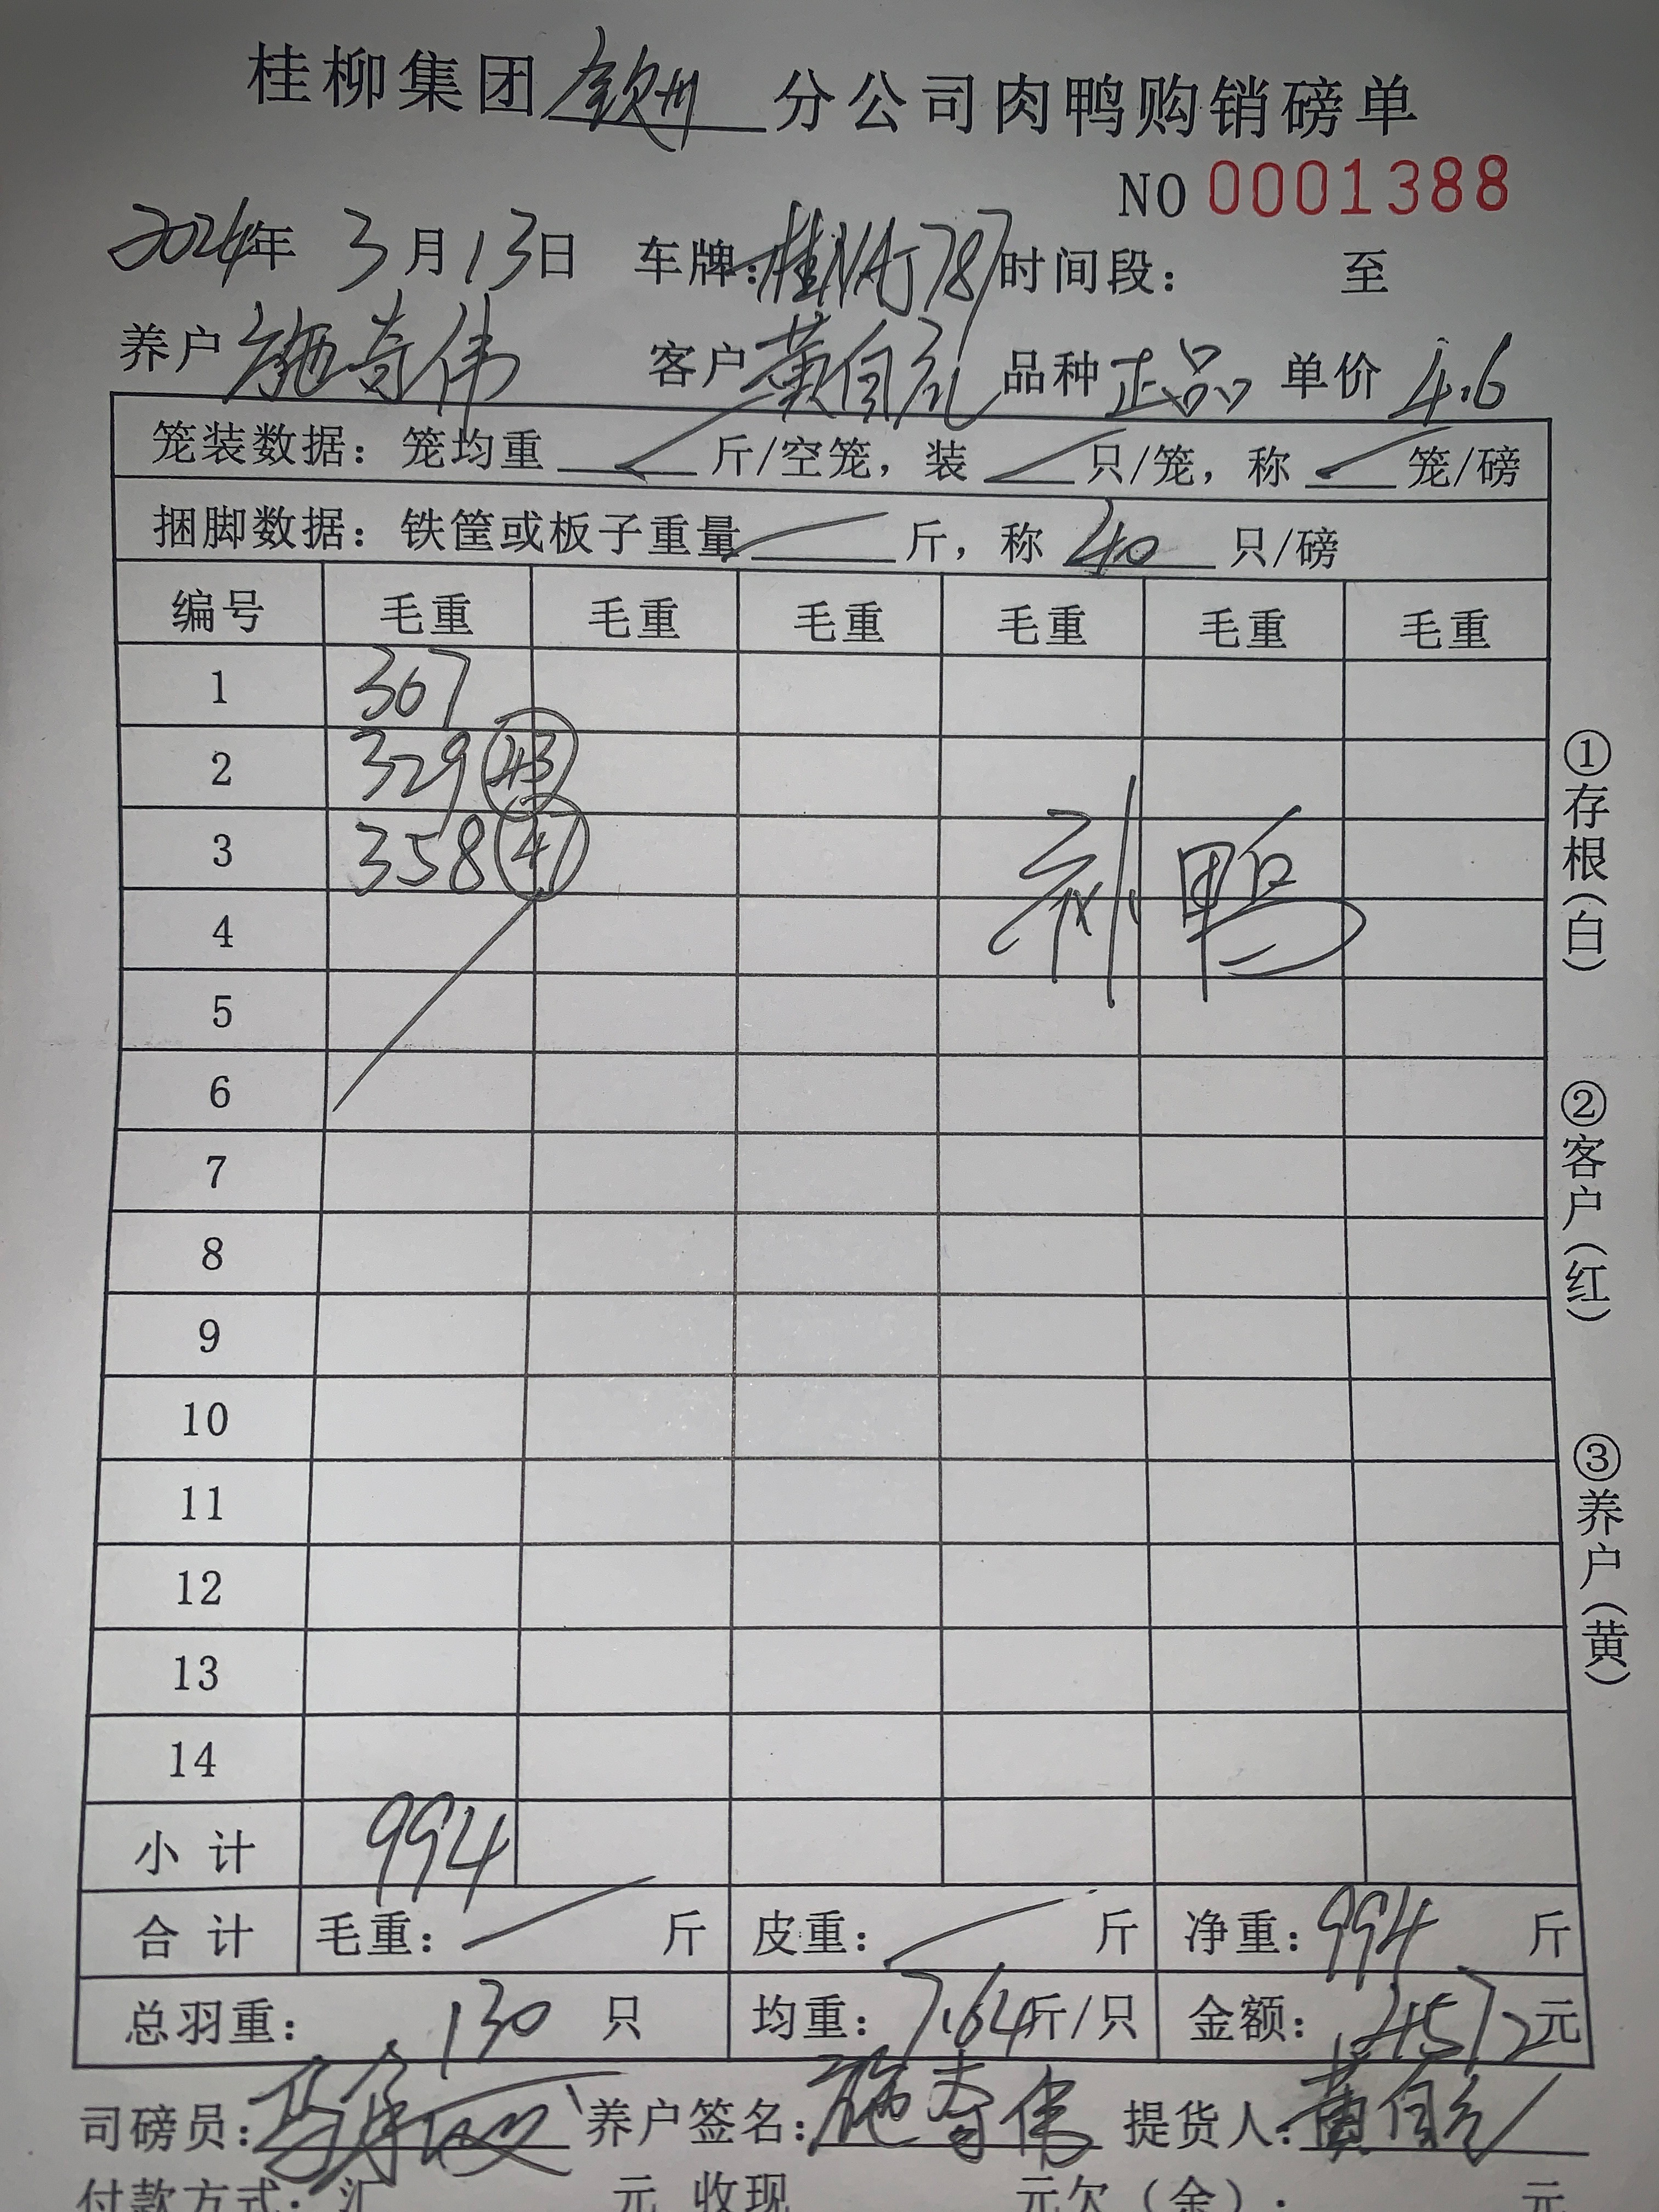 桂柳集团钦州分公司肉鸭购销磅单
NO 0001388
2024年 3月13日 车牌:桂NAJ787 时间段: 至
养户 施奇伟 客户 黄自礼 品种 正品 单价 4.6
笼装数据: 笼均重 斤/空笼, 装 只/笼, 称 笼/磅
捆脚数据: 铁筐或板子重量 斤, 称 40 只/磅
编号 毛重 毛重 毛重 毛重 毛重 毛重
1 367
2 329 43
3 358 47
补鸭
4
5
6
7
8
9
10
11
12
13
14
小计 994
合计 毛重: 斤 皮重: 斤 净重: 994 斤
总羽重: 130 只 均重: 7.64斤/只 金额: 4572元
司磅员: 养户签名: 施奇伟 提货人: 黄自礼
付款方式: 汇 元 收现 元欠(余): 元
①存根(白)
②客户(红)
③养户(黄)